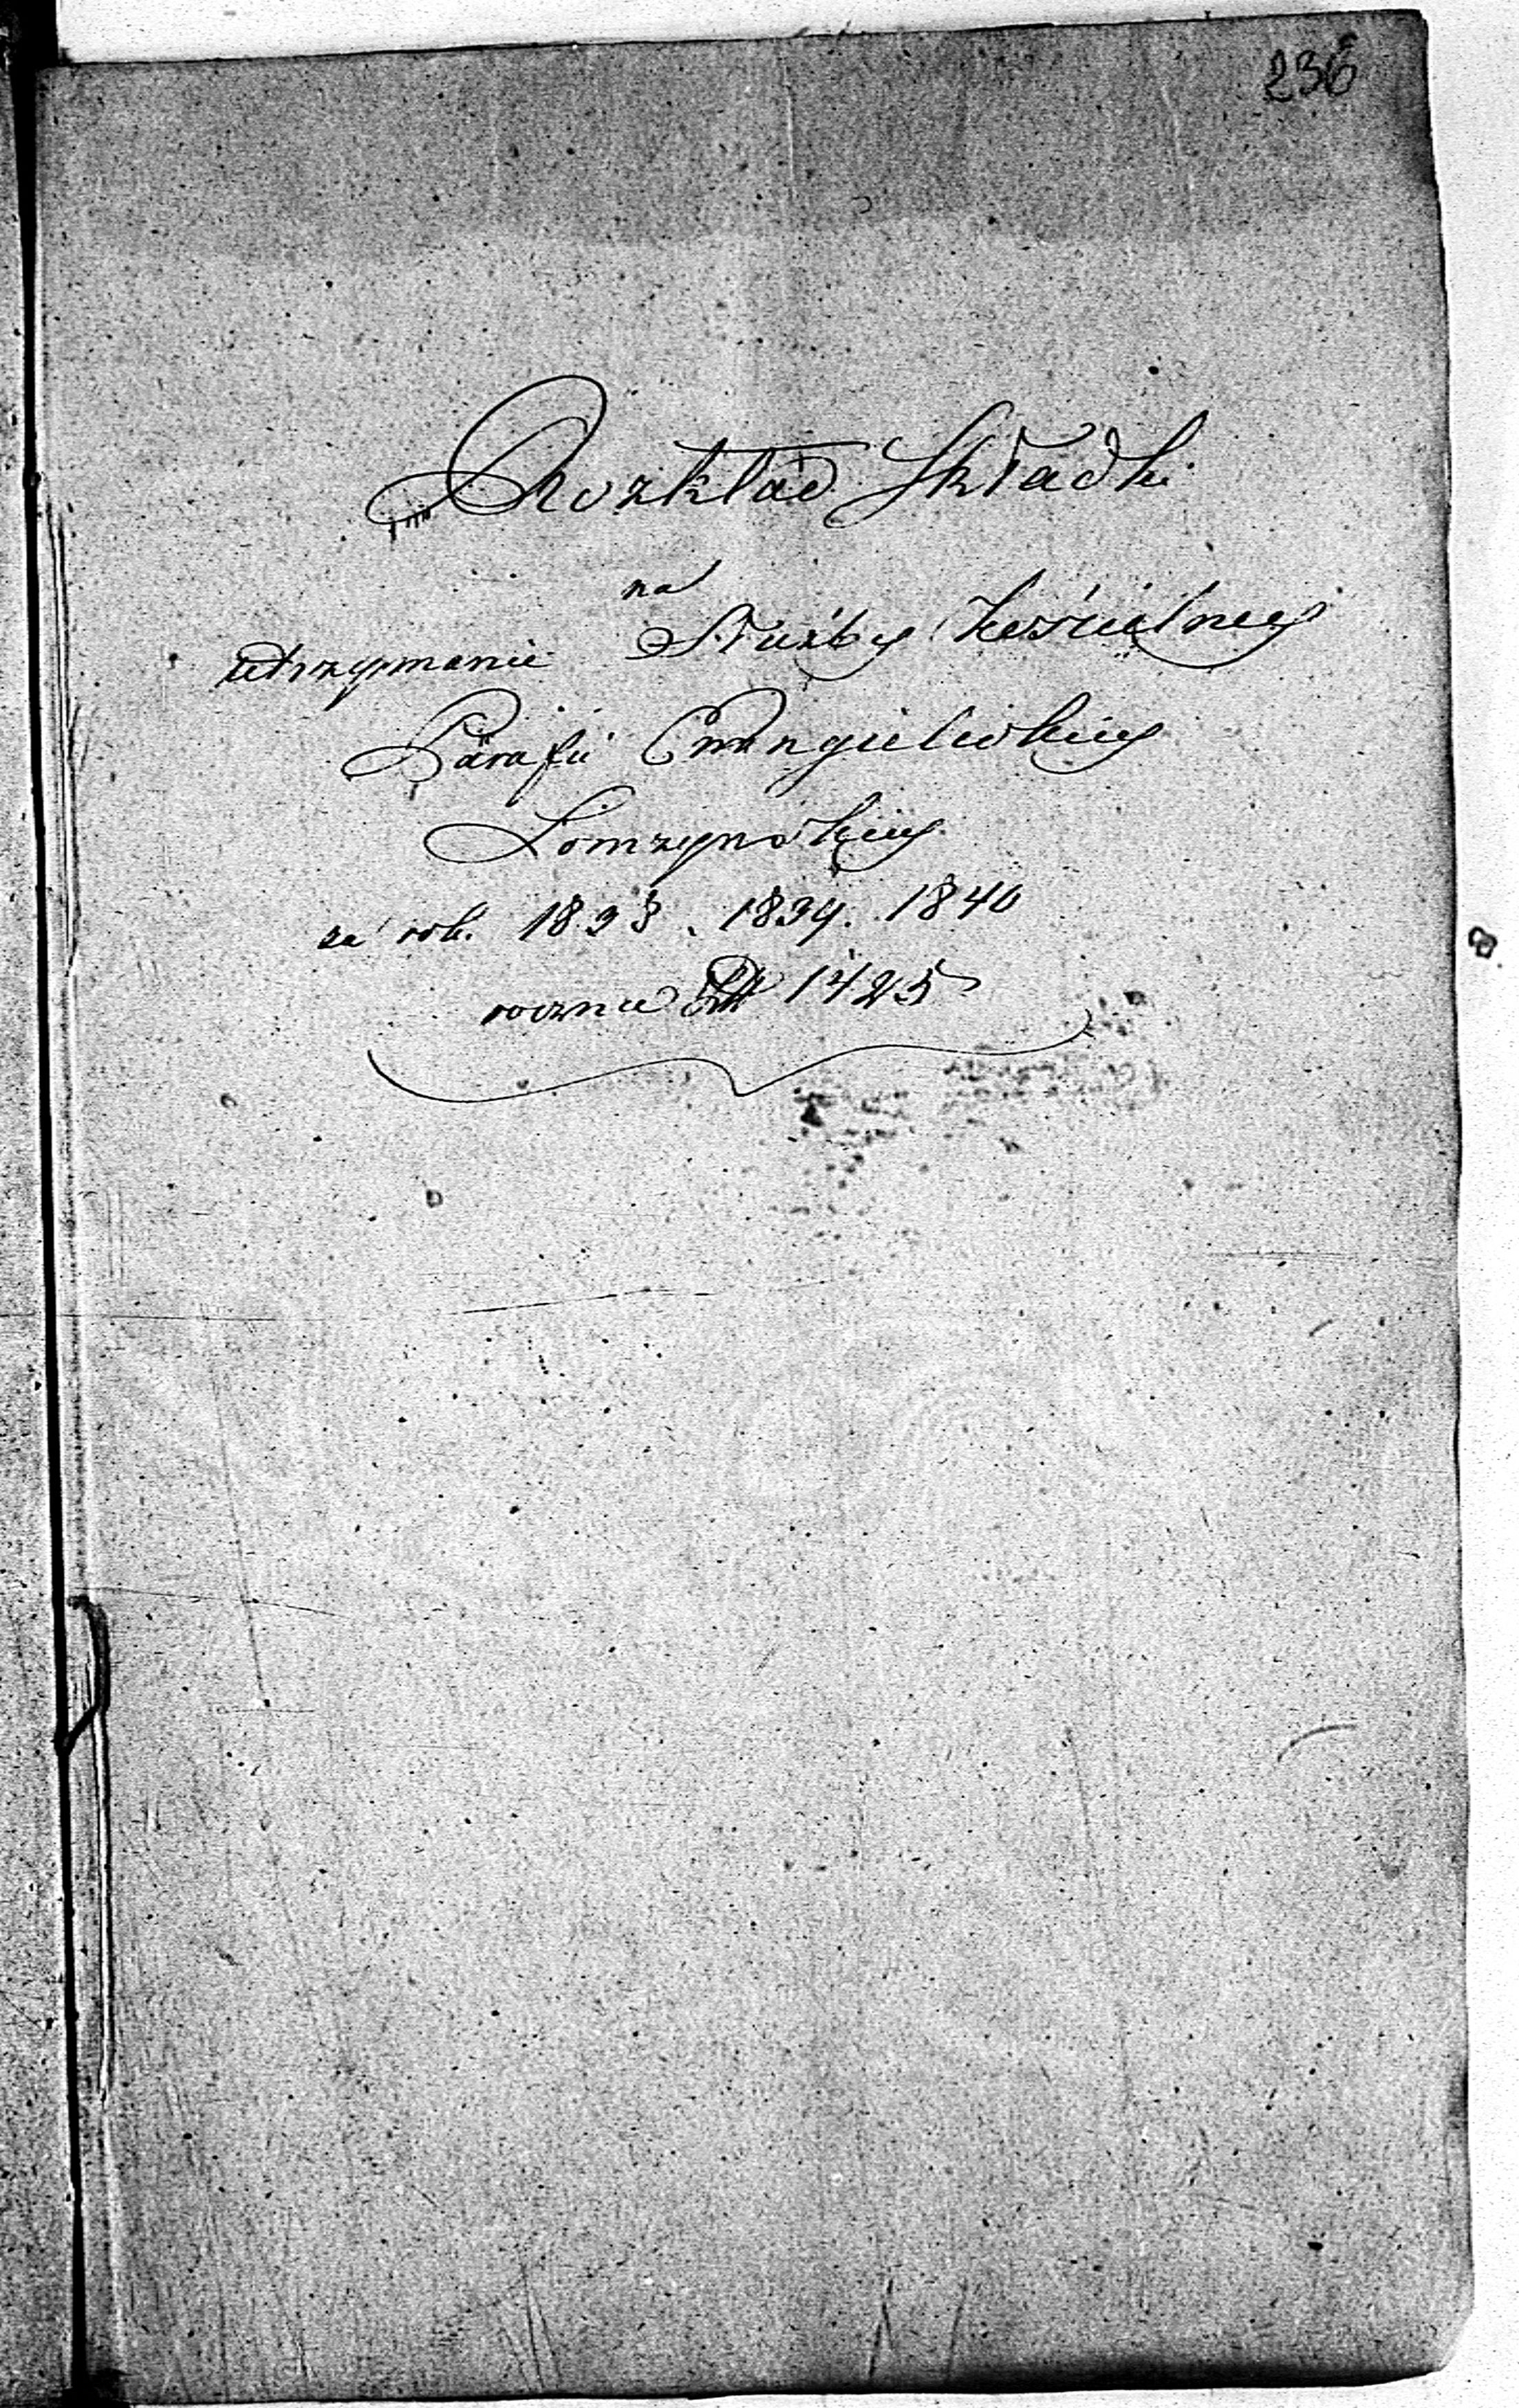 236
Rozkład Składki
na
utrzymanie Służby Kościelney
Parafii Ewangielickiey
Łomzynskiey
za rok. 1838. 1839. 1840
rocznie 1425